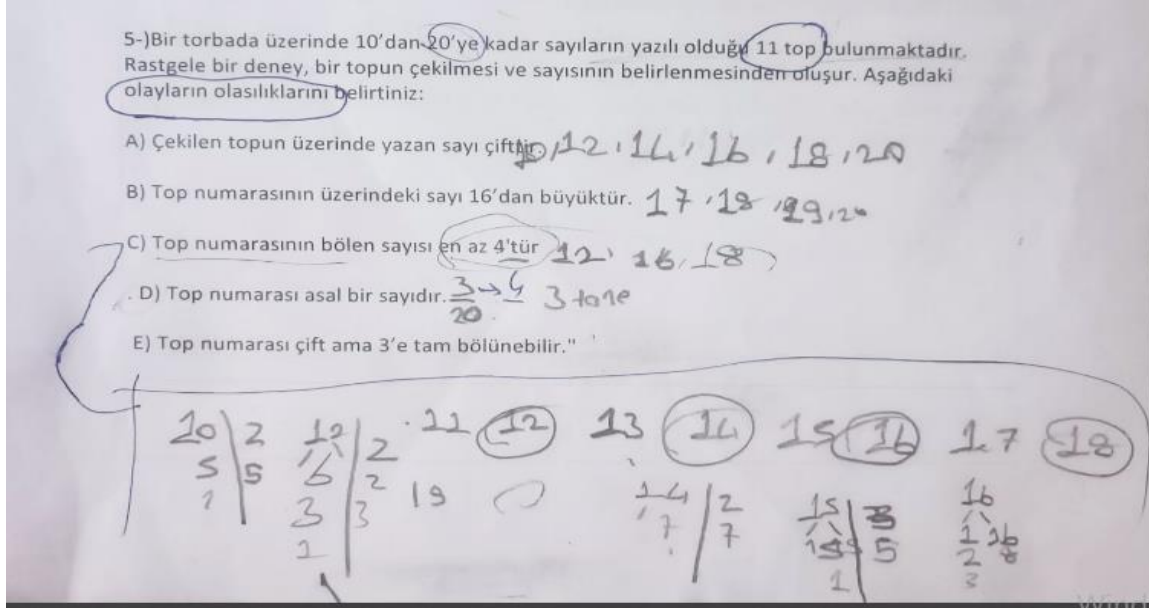 5-)Bir torbada üzerinde 10'dan 20'ye kadar sayıların yazılı olduğu 11 top bulunmaktadır.
Rastgele bir deney, bir topun çekilmesi ve sayısının belirlenmesinden oluşur. Aşağıdaki
olayların olasılıklarını belirtiniz:
A) Çekilen topun üzerinde yazan sayı çifttir. 10, 12, 14, 16, 18, 20
B) Top numarasının üzerindeki sayı 16'dan büyüktür. 17, 18, 19, 20
C) Top numarasının bölen sayısı en az 4'tür 12, 16, 18
D) Top numarası asal bir sayıdır. 3/20 → 4 3 tane
E) Top numarası çift ama 3'e tam bölünebilir."
10 2 12 2 11 12 13 14 15 16 17 18
5 5 6 2 19 14 2 15 16
1 3 3 7 7 5 1 16
1 1 2 8
3